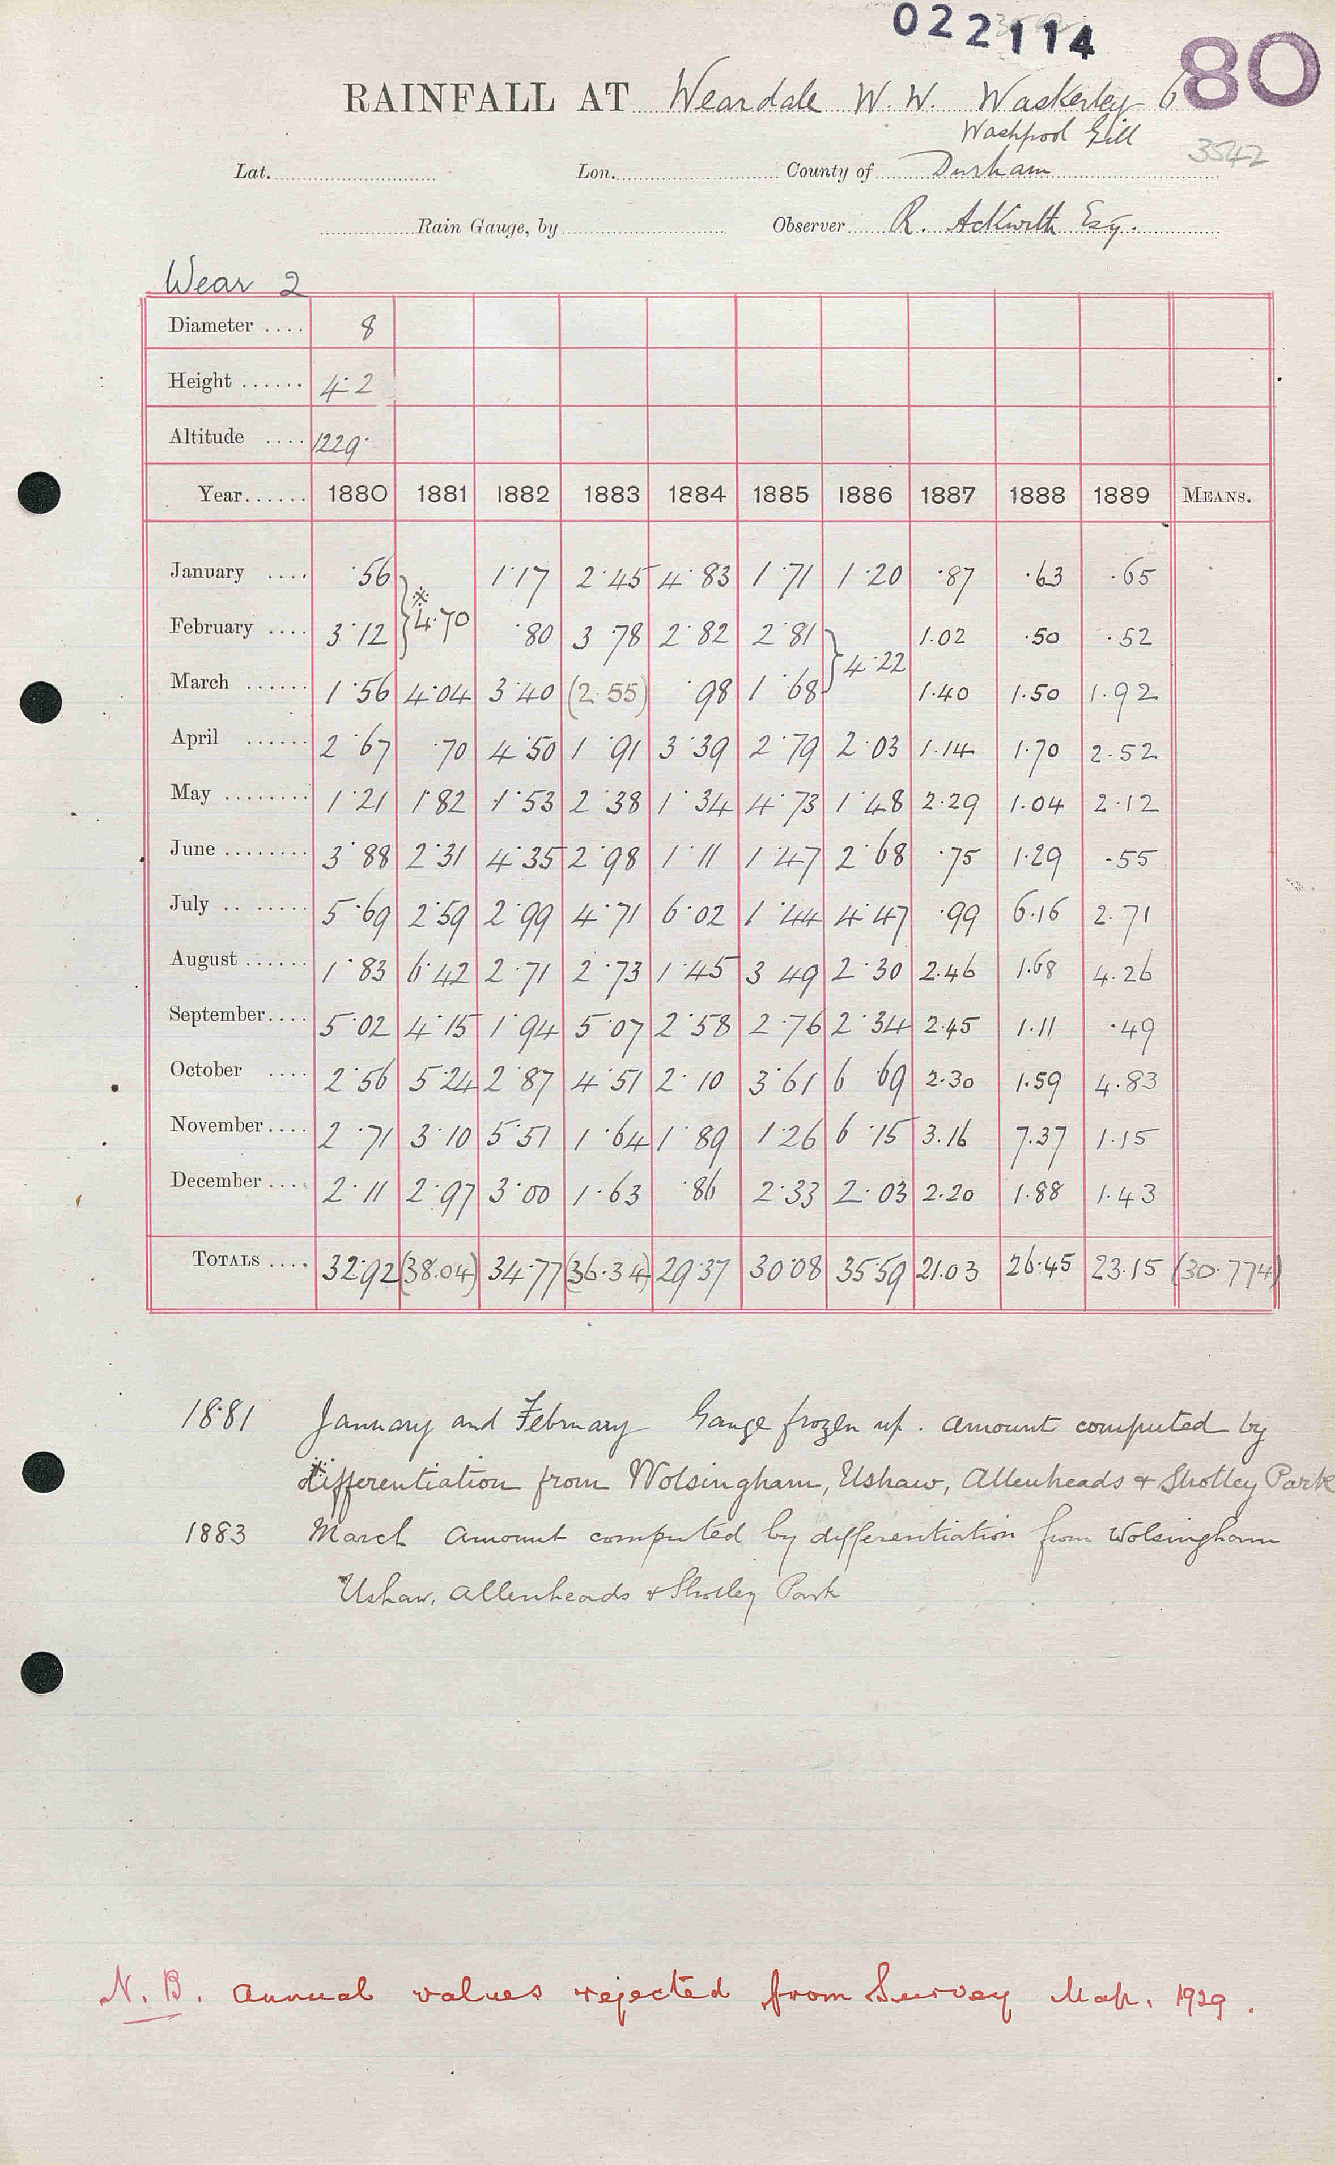 022114
80
RAINFALL AT Weardale W. W. Waskerley 6
Washpool Gill
3542
Lat. Lon. County of Durham
Rain Gauge, by Observer R. Ackwith Esq.
Wear 2
Diameter .... 8
Height ...... 4·2
Altitude .... 1229·
Year...... 1880 1881 1882 1883 1884 1885 1886 1887 1888 1889 MEANS.
January .... ·56 } ※ 4·70 1·17 2·45 4·83 1·71 1·20 ·87 ·63 ·65
February .... 3·12 ·80 3·78 2·82 2·81 } 4·22 1.02 ·50 ·52
March ...... 1·56 4·04 3·40 (2.55) ·98 1·68 1·40 1.50 1.92
April ...... 2·67 ·70 4·50 1·91 3·39 2·79 2·03 1.14 1·70 2.52
May ........ 1·21 1·82 1·53 2·38 1·34 4·73 1·48 2.29 1.04 2·12
June ........ 3·88 2·31 4·35 2·98 1·11 1·47 2·68 ·75 1·29 ·55
July .. ...... 5·69 2·59 2·99 4·71 6·02 1·44 4·47 ·99 6·16 2.71
August ...... 1·83 6·42 2·71 2·73 1·45 3·49 2·30 2.46 1.68 4.26
September.... 5·02 4·15 1·94 5·07 2·58 2·76 2·34 2.45 1.11 ·49
October .... 2·56 5·24 2·87 4·51 2·10 3·61 6·69 2.30 1.59 4.83
November.... 2·71 3·10 5·51 1·64 1·89 1·26 6·15 3.16 7.37 1.15
December .... 2·11 2·97 3·00 1·63 ·86 2·33 2·03 2.20 1.88 1.43
TOTALS .... 32·92 (38.04) 34·77 (36.34) 29·37 30·08 35·59 21.03 26.45 23.15 (30.774)
1881 January and February Gauge frozen up. Amount computed by
differentiation from Wolsingham, Ushaw, Allenheads & Shotley Park
1883 March Amount computed by differentiation from Wolsingham
Ushaw, Allenheads & Shotley Park
N.B. Annual values rejected from Survey Map. 1929.